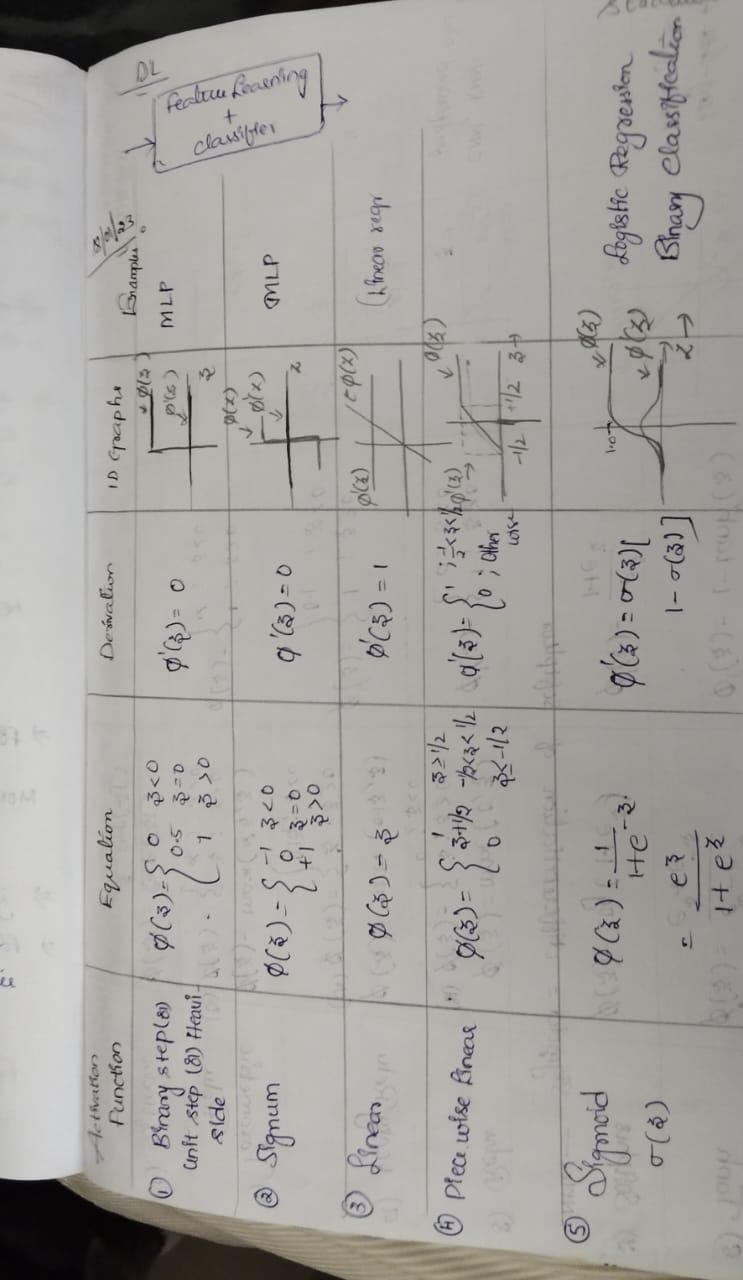 DL
Feature Learning
+
classifier
Activation Function | Equation | Derivation | 1D Graphs | Examples
① Binary step (or) unit step (or) Heavi-side | φ(z) = { 0 z<0 ; 0.5 z=0 ; 1 z>0 | φ'(z) = 0 | φ(z) φ'(z) z | MLP
② Signum | φ(z) = { -1 z<0 ; 0 z=0 ; +1 z>0 | φ'(z) = 0 | φ(z) φ'(z) z | MLP
③ Linear | φ(z) = z | φ'(z) = 1 | φ'(z) φ(z) | (Linear regr
④ Piece wise Linear | φ(z) = { 1 z ≥ 1/2 ; z+1/2 -1/2<z<1/2 ; 0 z ≤ -1/2 | φ'(z) = { 1 ; -1/2<z<1/2 ; 0 ; Other wise | φ'(z) → φ(z) -1/2 +1/2 z→
⑤ Sigmoid σ(z) | φ(z) = 1/(1+e^-z) = e^z/(1+e^z) | φ'(z) = σ(z)[1-σ(z)] | 1.0 φ(z) φ'(z) z→ | Logistic Regression Binary Classification